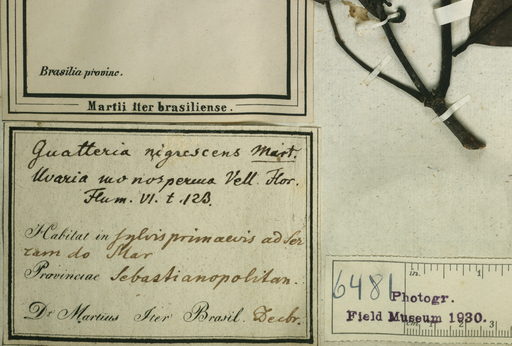 Brasilia provinc.
Martii Iter brasiliense.
Guatteria nigrescens Mart.
Uvaria monosperma Vell. Flor.
Flum. VI. t. 123.
Habitat in sylvis primaevis ad Ser
ram do Mar
Provinciae Sebastianopolitan.
Dr Martius Iter Brasil. Decbr.
in. 1
6481 Photogr.
Field Museum 1930.
cm. 1 2 3